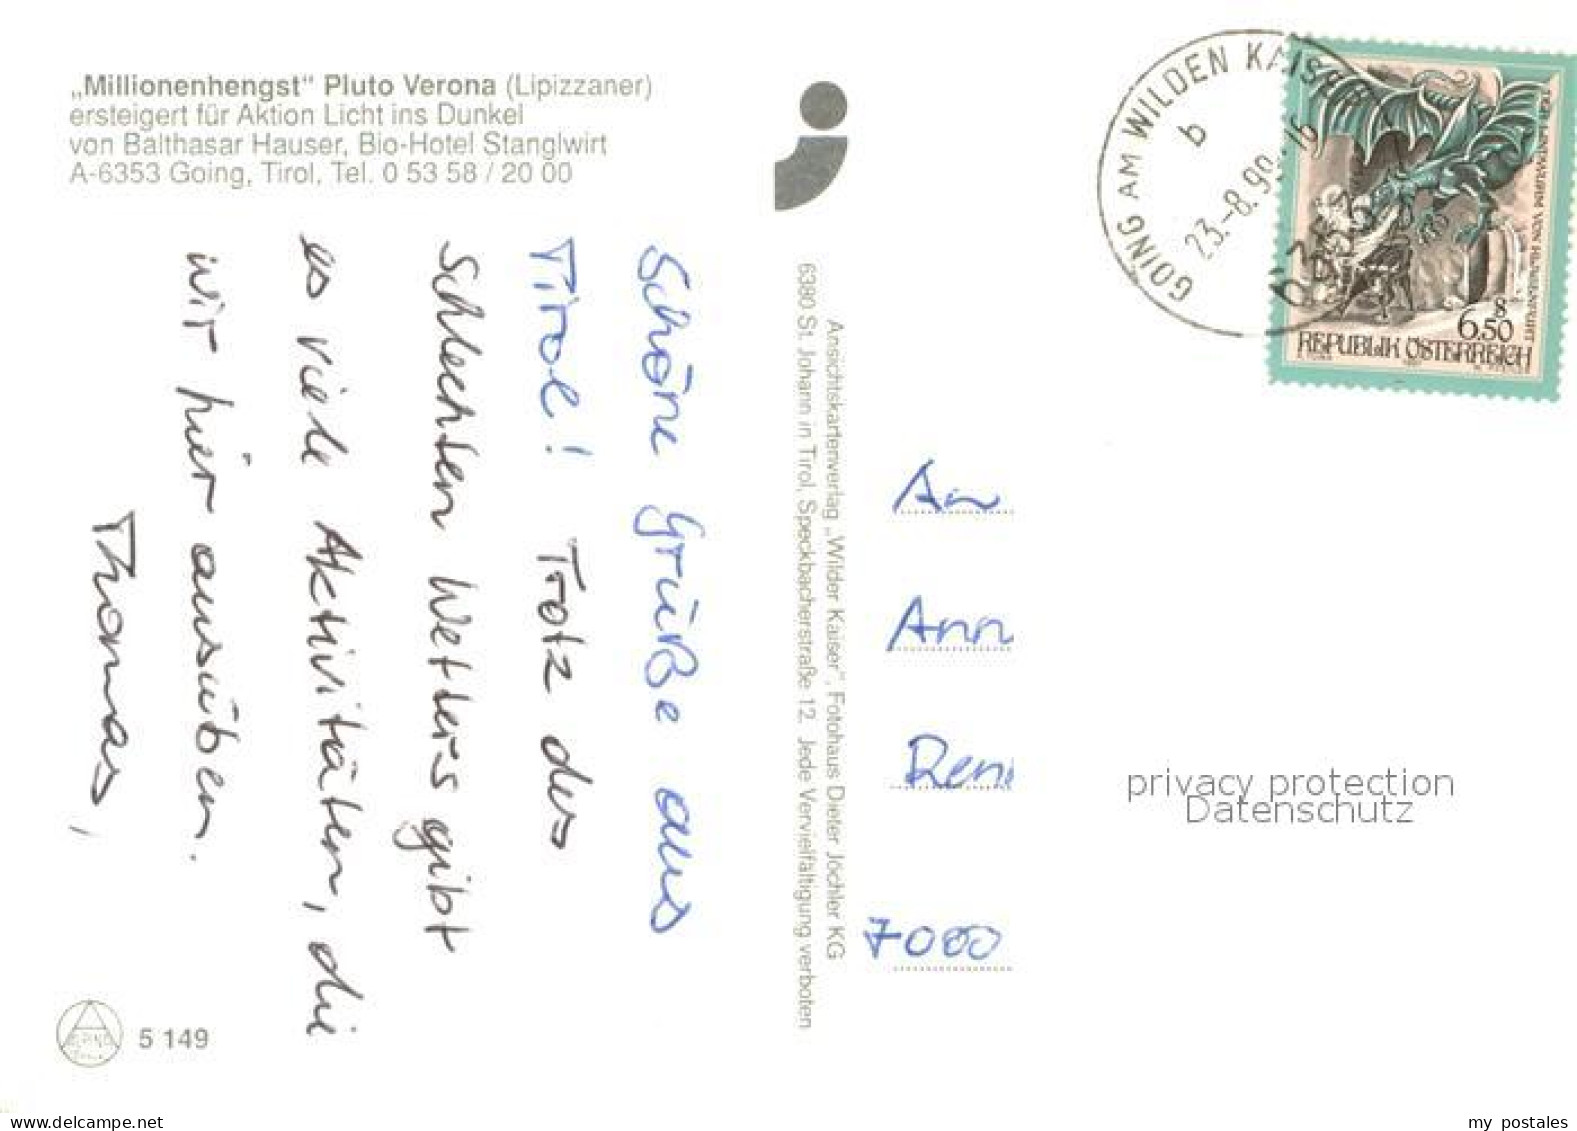 „Millionenhengst“ Pluto Verona (Lipizzaner)
ersteigert für Aktion Licht ins Dunkel
von Balthasar Hauser, Bio-Hotel Stanglwirt
A-6353 Going, Tirol, Tel. 0 53 58 / 20 00
Schöne Grüße aus
Tirol! Trotz des
schlechten Wetters gibt
es viele Aktivitäten, die
wir hier ausüben.
Thomas,
5 149
Ansichtskartenverlag „Wilder Kaiser“, Fotohaus Dieter Jöchler KG
6380 St. Johann in Tirol, Speckbacherstraße 12. Jede Vervielfältigung verboten
GOING AM WILDEN KAISER
b
23.-8.99-16
6353
DER LINDWURM VON KLAGENFURT
S
6.50
REPUBLIK ÖSTERREICH
An
Ann
Reni
7000
privacy protection
Datenschutz
oldthing
my postales